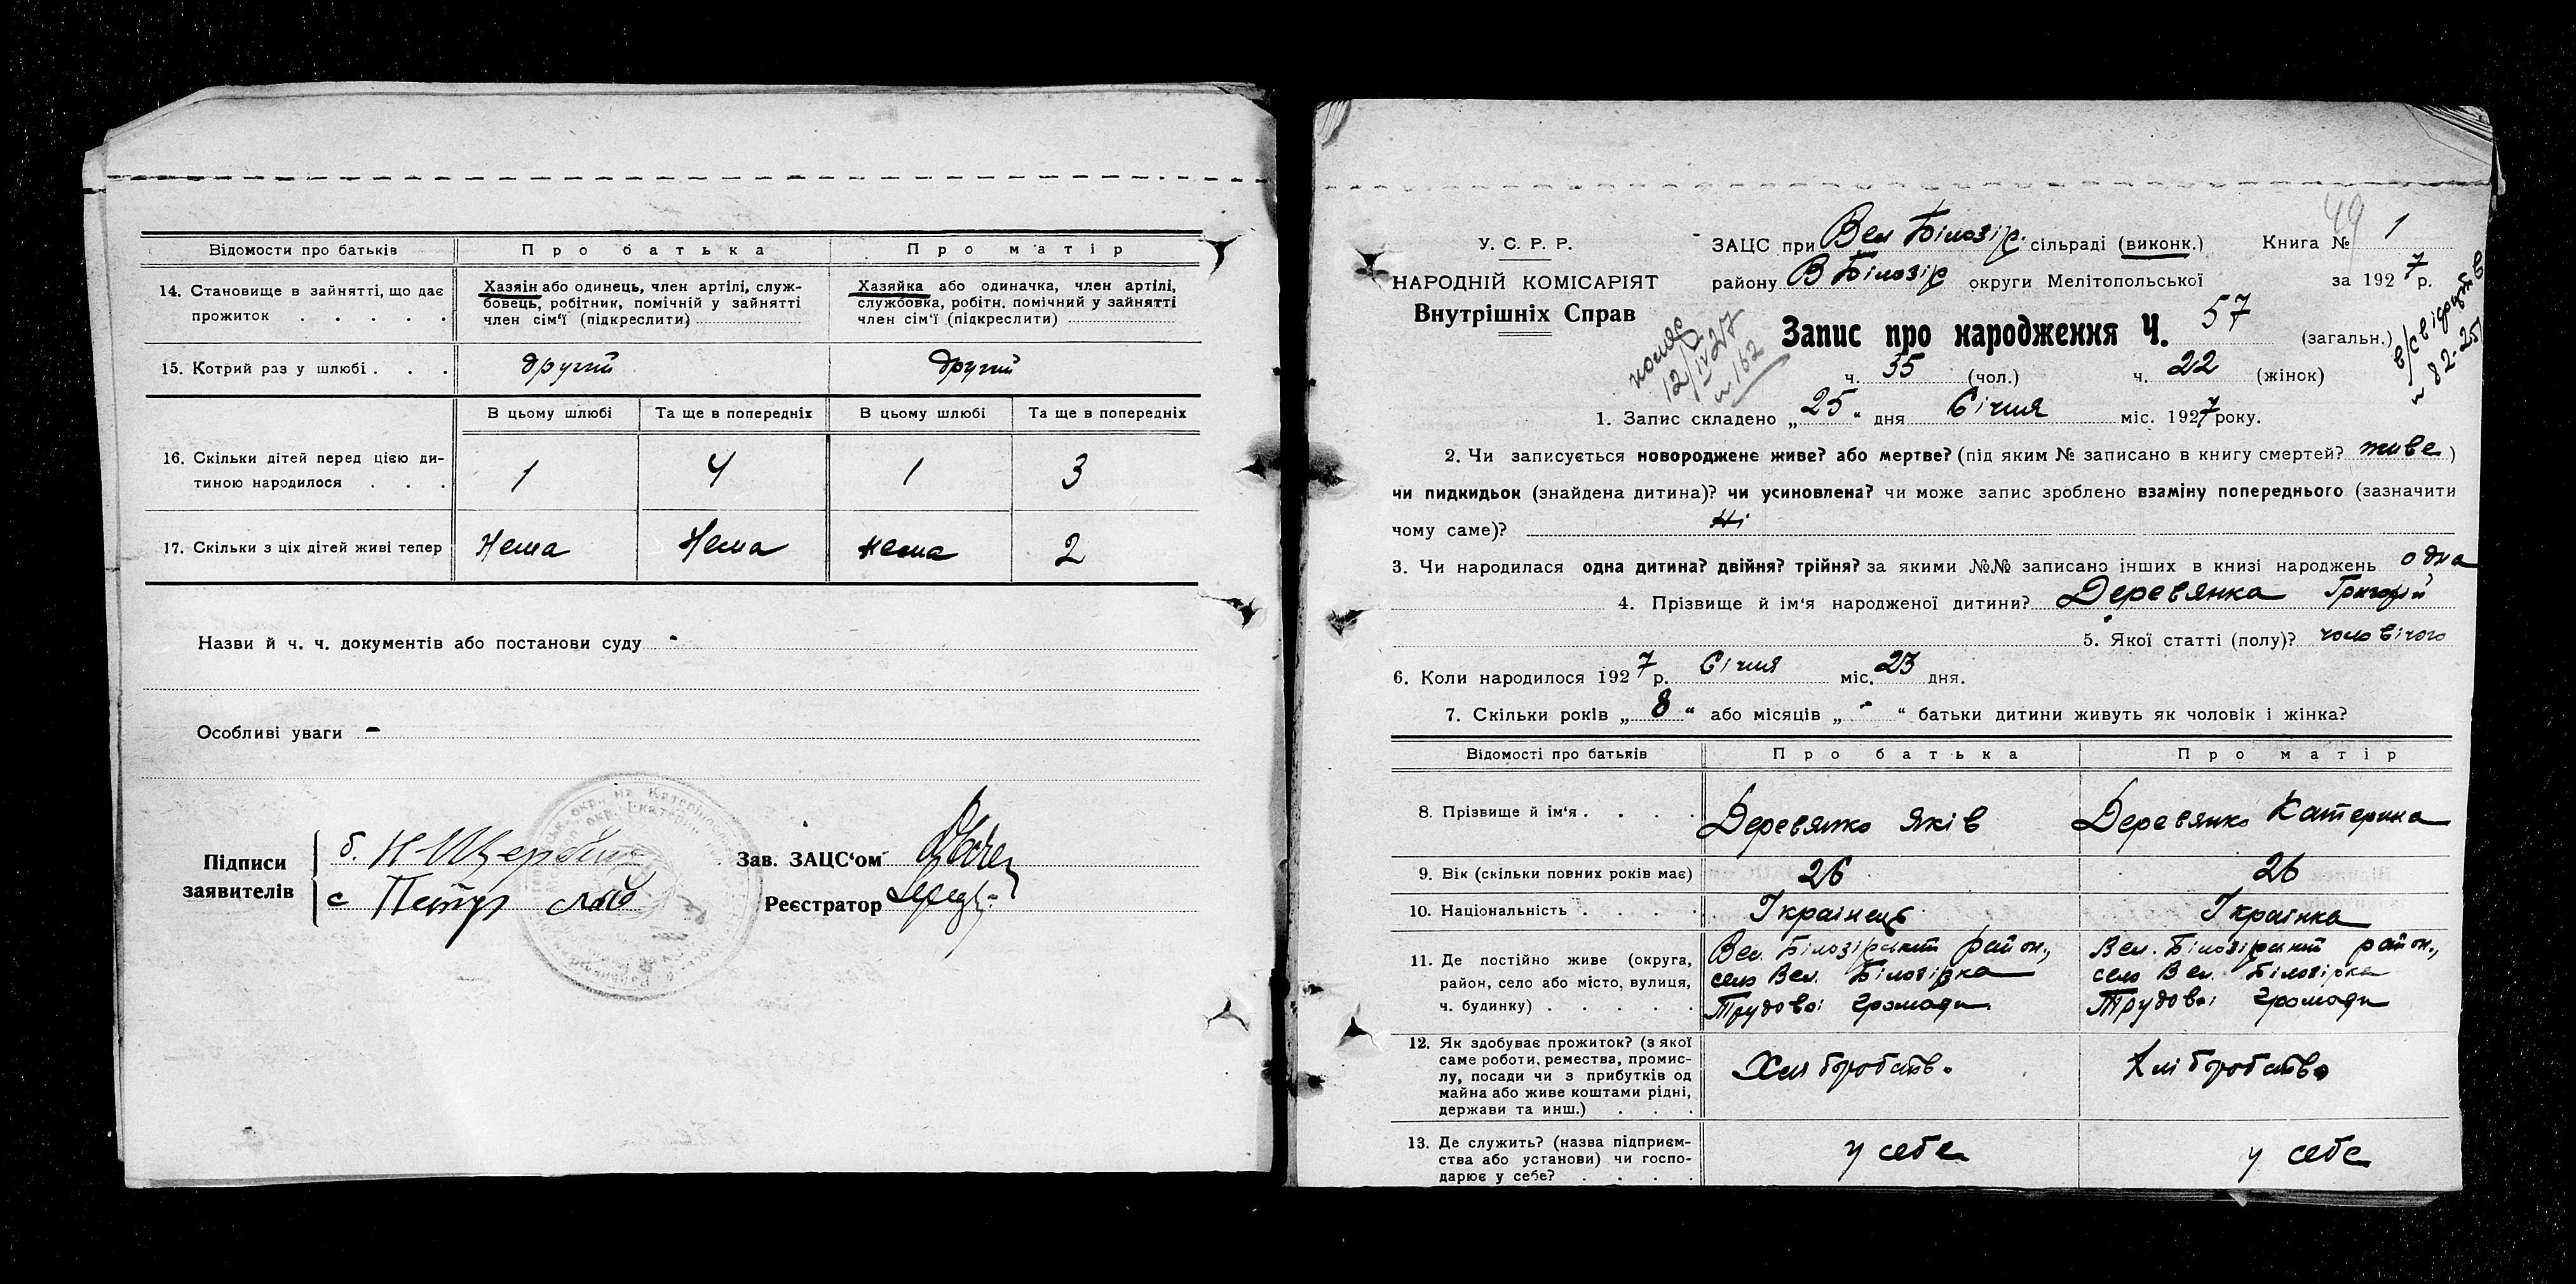 Відомости про батьків Про батька Про матір
14. Становище в зайнятті, що дає прожиток . . . . .
Хазяін або одинець, член артілі, служ-
бовець, робітник, помічній у зайнятті
член сім'ї (підкреслити)
Хазяйка або одиначка, член артілі,
службовка, робітн. помічний у зайнятті
член сім'ї (підкреслити)
15. Котрий раз у шлюбі . . . другий другий
В цьому шлюбі Та ще в попередніх В цьому шлюбі Та ще в попередніх
16. Скільки дітей перед цією ди-
тиною народилося . . . 1 4 1 3
17. Скільки з ціх дітей живі тепер Нема Нема нема 2
Назви й ч. ч. документів або постанови суду -
Особливі уваги -
Підписи
заявителів
б. Н Щерб
с Петур
Зав. ЗАЦС'ом
Реєстратор
49
У. С. Р. Р.
НАРОДНІЙ КОМІСАРІЯТ
Внутрішніх Справ
ЗАЦС при Вел Білозір. сільраді (виконк.) Книга № 1
району В Білозір округи Мелітопольської за 1927 р.
12/IV 27
№ 162
Запис про народження Ч. 57 (загальн.)
№ 82-25
ч. 35 (чол.) ч. 22 (жінок)
1. Запис складено „25“ дня Січня міс. 1927 року.
2. Чи записується новороджене живе? або мертве? (під яким № записано в книгу смертей? живе)
чи пидкидьок (знайдена дитина)? чи усиновлена? чи може запис зроблено взаміну попереднього (зазначити
чому саме)? Ні
3. Чи народилася одна дитина? двійня? трійня? за якими №№ записано інших в книзі народжень одна
4. Прізвище й ім'я народженої дитини? Деревянка Григорій
5. Якої статті (полу)? чоловічого
6. Коли народилося 1927 р. Січня міс. 23 дня.
7. Скільки років „8“ або місяців „-“ батьки дитини живуть як чоловік і жінка?
Відомості про батьків Про батька Про матір
8. Прізвище й ім'я . . . . Деревянко Яків Деревянко Катерина
9. Вік (скільки повних років має) 26 26
10. Національність . . . . Українець Українка
11. Де постійно живе (округа,
район, село або місто, вулиця,
ч. будинку) . . . . .
Вел. Білозірський район,
село Вел. Білозірка
Трудової громади
Вел. Білозірський район,
село Вел. Білозірка
Трудової громади
12. Як здобуває прожиток? (з якої
саме роботи, ремества, промис-
лу, посади чи з прибутків од
майна або живе коштами рідні,
держави та инш.) . . .
Хліборобство Хліборобство
13. Де служить? (назва підприєм-
ства або установи) чи госпо-
дарює у себе? . . . .
у себе у себе